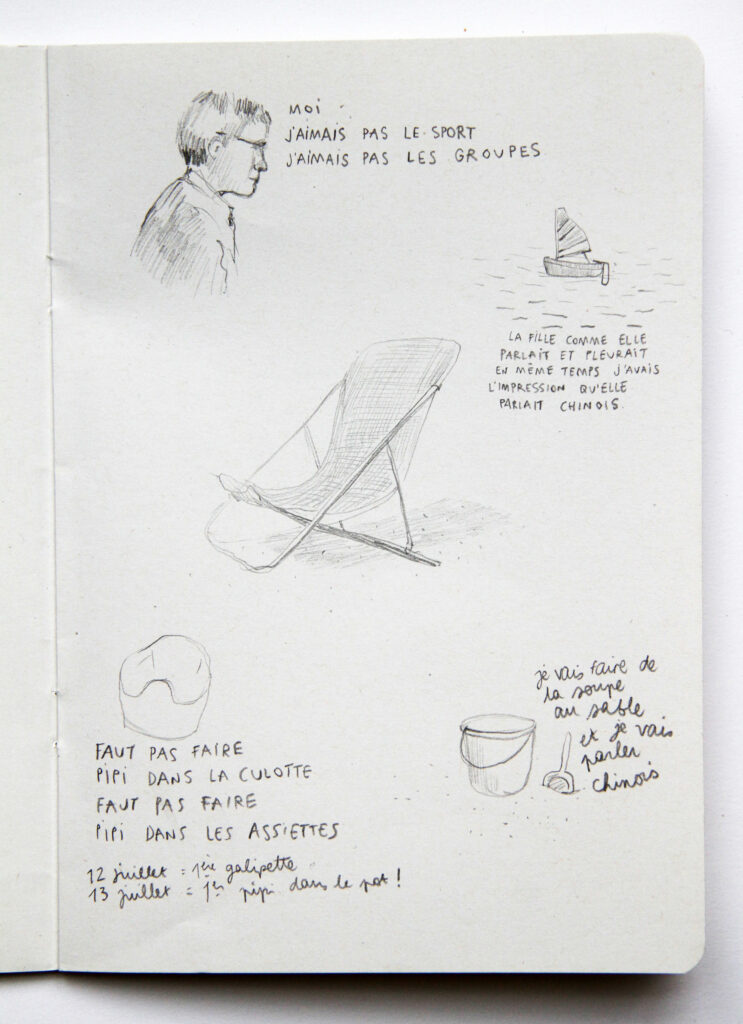 MOI
J'AIMAIS PAS LE SPORT
J'AIMAIS PAS LES GROUPES
LA FILLE COMME ELLE
PARLAIT ET PLEURAIT
EN MÊME TEMPS J'AVAIS
L'IMPRESSION QU'ELLE
PARLAIT CHINOIS.
je vais faire de
la soupe
au sable
et je vais
parler
chinois
FAUT PAS FAIRE
PIPI DANS LA CULOTTE
FAUT PAS FAIRE
PIPI DANS LES ASSIETTES
12 juillet = 1ère galipette
13 juillet = 1er pipi dans le pot !